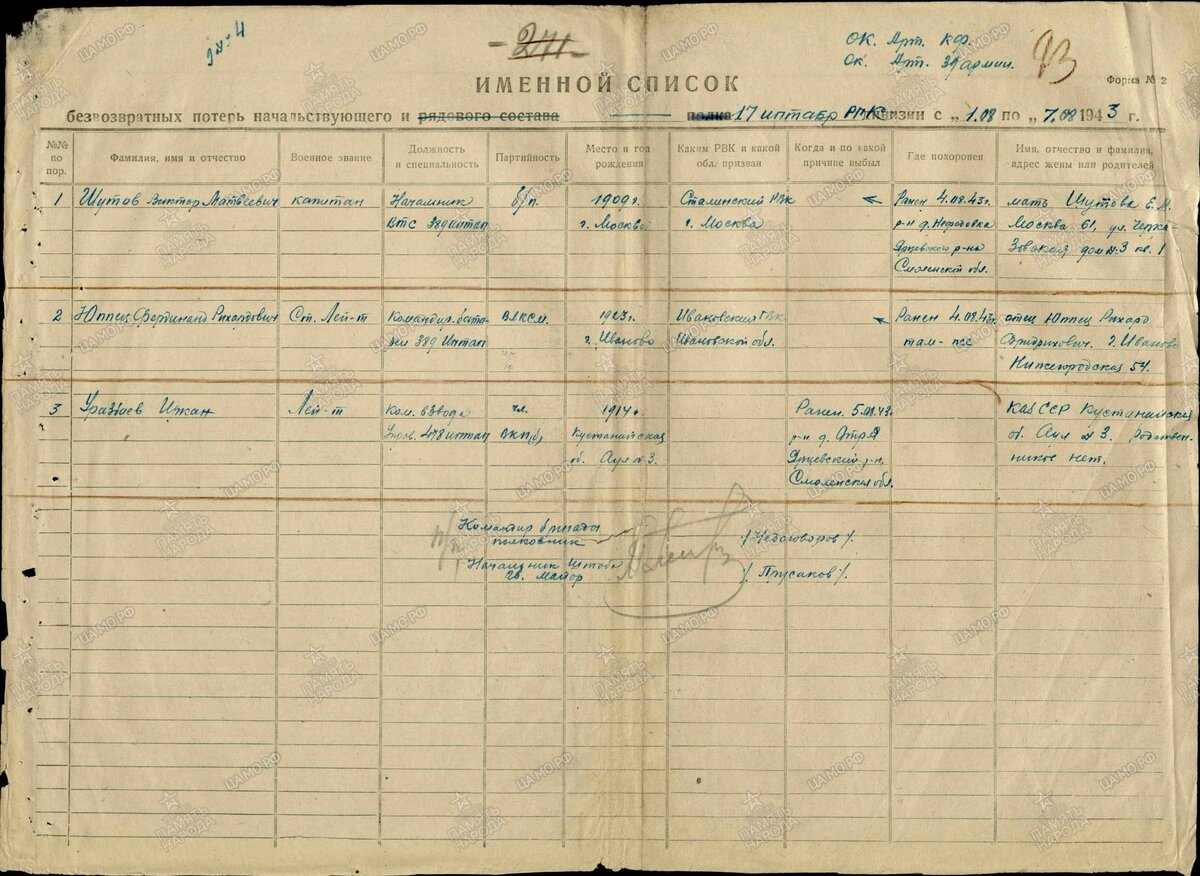 - 271 -
ОК. Арт. КФ.
Ок. Арт. 39 армии.
93
Форма № 2
ИМЕННОЙ СПИСОК
безвозвратных потерь начальствующего и рядового состава полка 17 иптабр РГК дивизии с „1.08 по „7.08 1943 г.
№№ по пор.
Фамилия, имя и отчество
Военное звание
Должность и специальность
Партийность
Место и год рождения
Каким РВК и какой обл. призван
Когда и по какой причине выбыл
Где похоронен
Имя, отчество и фамилия, адрес жены или родителей
1 Шутов Виктор Матвеевич капитан Начальник б/п. 1909г. Сталинский РВК Ранен 4.08.43г. мать Шутова Е.М.
ВТС 389 иптап г. Москва г. Москва р-н д. Нефедовка Москва 61, ул. Черки
Ярцевского р-на зовская дом №3 кв. 1
Смоленской обл.
2 Юппец Фердинанд Рихардович Ст. Лей-т Командир бата- ВЛКСМ. 1923г. Ивановский ГВК Ранен 4.08.43г. отец Юппец Рихард
реи 389 Иптап г. Иваново Ивановской обл. там-же Фридрихович. г. Иваново
Нижегородская 54.
3 Уразбаев Ижан Лей-т Ком. взвода чл. 1914г. Ранен. 5.08.43г. КазССР Кустанайская
Упров. 478 иптап ВКП(б) Кустанайская р-н д. Отря об. Аул №3. Родствен-
об. Аул №3. Ярцевский р-н. ников нет.
Смоленская обл.
п/п Командир бригады
полковник /Недоговоров/.
Начальник Штаба
гв. майор /Прусаков/.
ЦАМО.РФ
ПАМЯТЬ НАРОДА